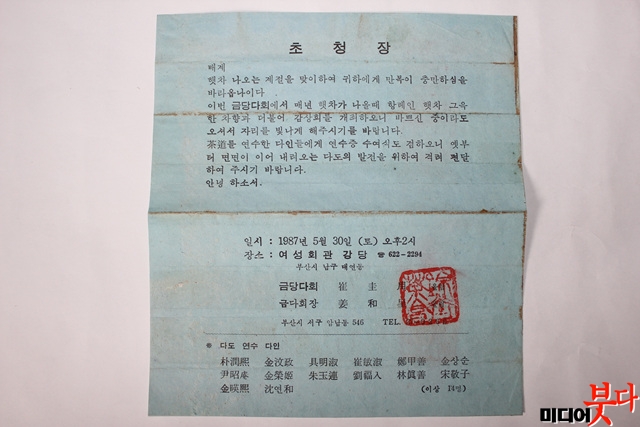 초 청 장
배계
햇차 나오는 계절을 맞이하여 귀하에게 만복이 충만하심을
바라옵나이다
이번 금당다회에서 매년 햇차가 나올때 할때인 햇차 그윽
한 차향과 더불어 감상회를 개최하오니 바쁘신 중이라도
오셔서 자리를 빛나게 해주시기를 바랍니다.
茶道를 연수한 다인들에게 연수증 수여식도 겸하오니 옛부
터 면면이 이어 내려오는 다도의 발전을 위하여 격려 편달
하여 주시기 바랍니다.
안녕 하소서.
일시 : 1987년 5월 30일 (토) 오후2시
장소 : 여성회관 강당 ☎ 622-2294
부산시 남구 대연동
금당다회 崔 圭
금다회장 姜 和
부산시 서구 암남동 546 TEL
※ 다도 연수 다인
朴潤熙 金汶政 具明淑 崔敏淑 鄭甲善 金상순
尹昭庵 金榮姬 朱玉連 劉福入 林眞善 宋敬子
金暎熙 沈연和 (이상 14명)
미디어붓다